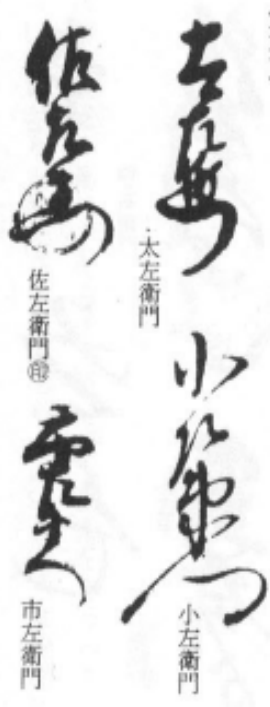 太左衛門
小左衛門
佐左衛門㊞
市左衛門